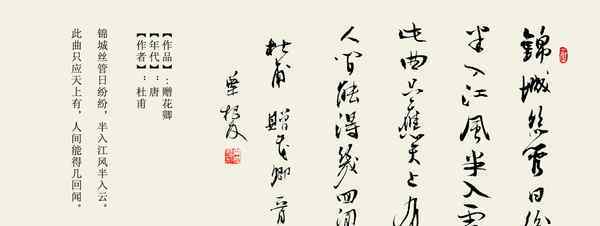 錦城丝管日纷
半入江風半入雲
此曲只應天上有
人间能得幾回闻
杜甫 赠花卿
【作品】：赠花卿
【年代】：唐
【作者】：杜甫
锦城丝管日纷纷，半入江风半入云。
此曲只应天上有，人间能得几回闻。